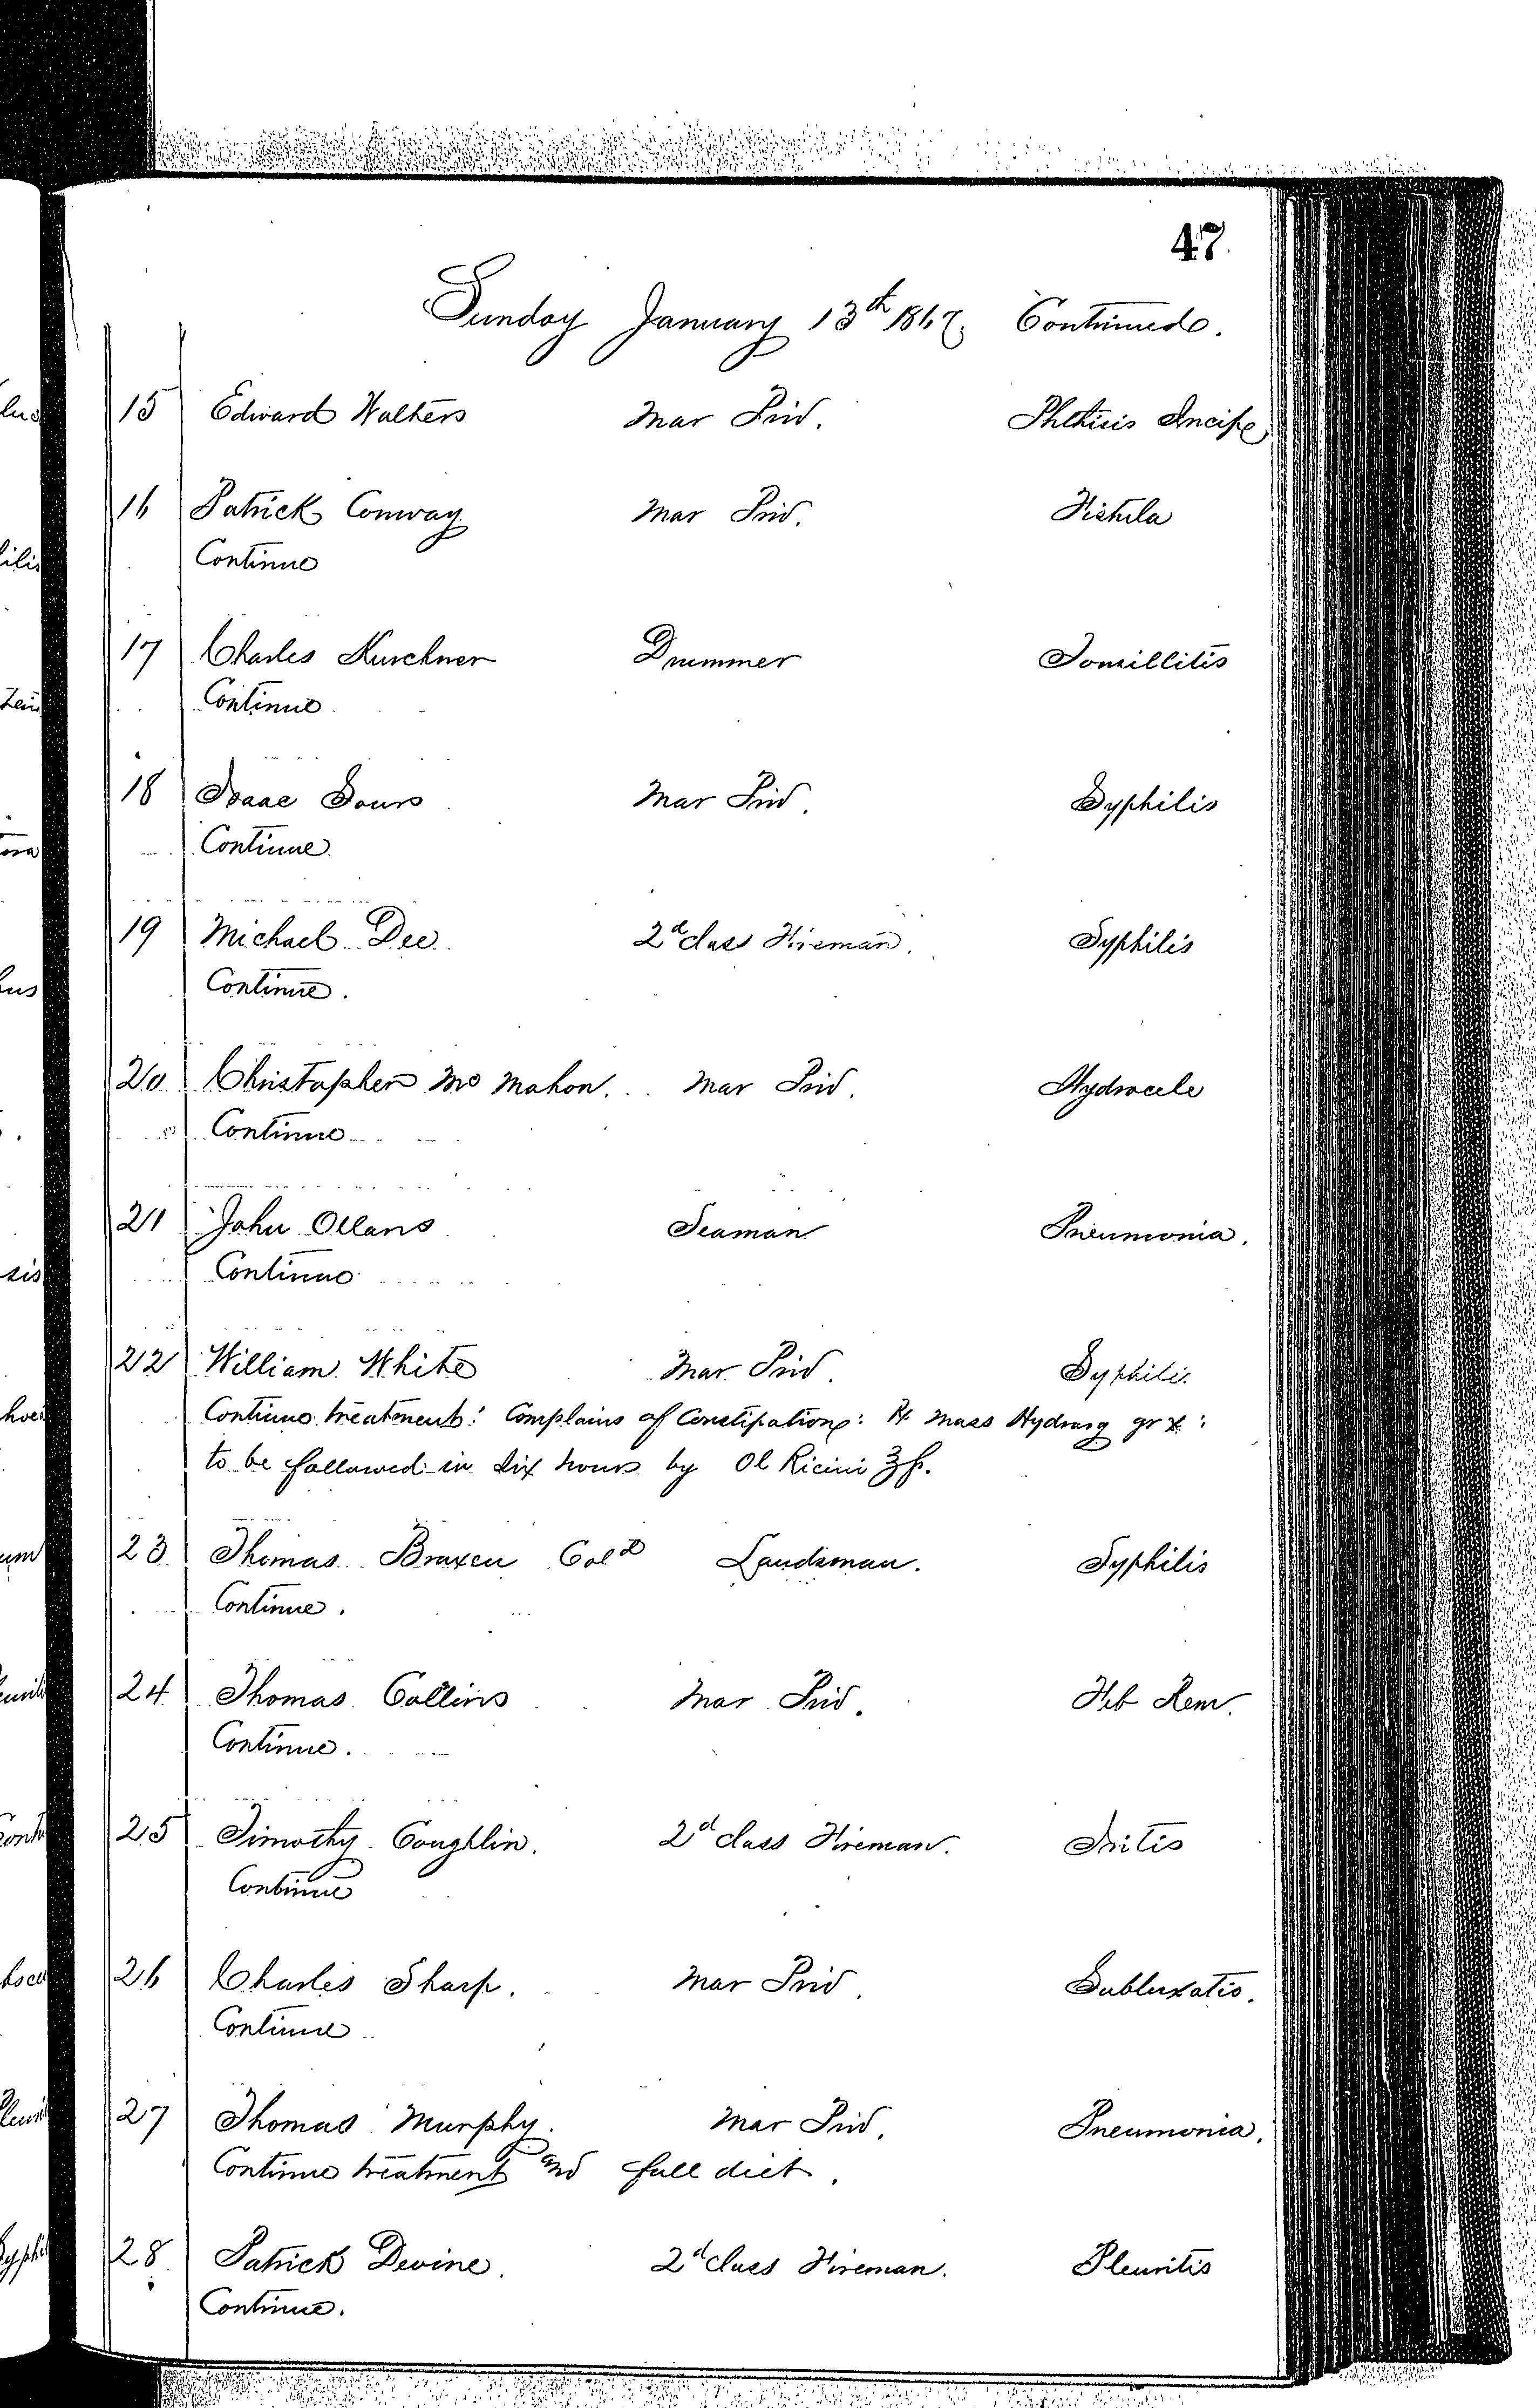 47
Sunday January 13th 1867. Continued.
15 Edward Walters Mar Priv. Phthisis Incip
16 Patrick Conway Mar Priv. Fistula
Continue
17 Charles Kurchner Drummer Tonsillitis
Continue
18 Isaac Sours Mar Priv. Syphilis
Continue
19 Michael Dee 2d class Fireman. Syphilis
Continue.
20 Christopher Mc Mahon. Mar Priv. Hydrocele
Continue
21 John Ollans Seaman Pneumonia.
Continue
22 William White Mar Priv. Syphilis
Continue treatment: Complains of Constipation: ℞ Mass Hydrarg gr x:
to be followed in six hours by Ol Ricini ℥fs.
23 Thomas Braxen Cold Landsman. Syphilis
Continue.
24 Thomas Collins Mar Priv. Feb Rem.
Continue.
25 Timothy Coughlin. 2d class Fireman. Iritis
Continue
26 Charles Sharp. Mar Priv. Subluxatio.
Continue
27 Thomas Murphy. Mar Priv. Pneumonia.
Continue treatment and full diet.
28 Patrick Devine. 2d class Fireman. Pleuritis
Continue.